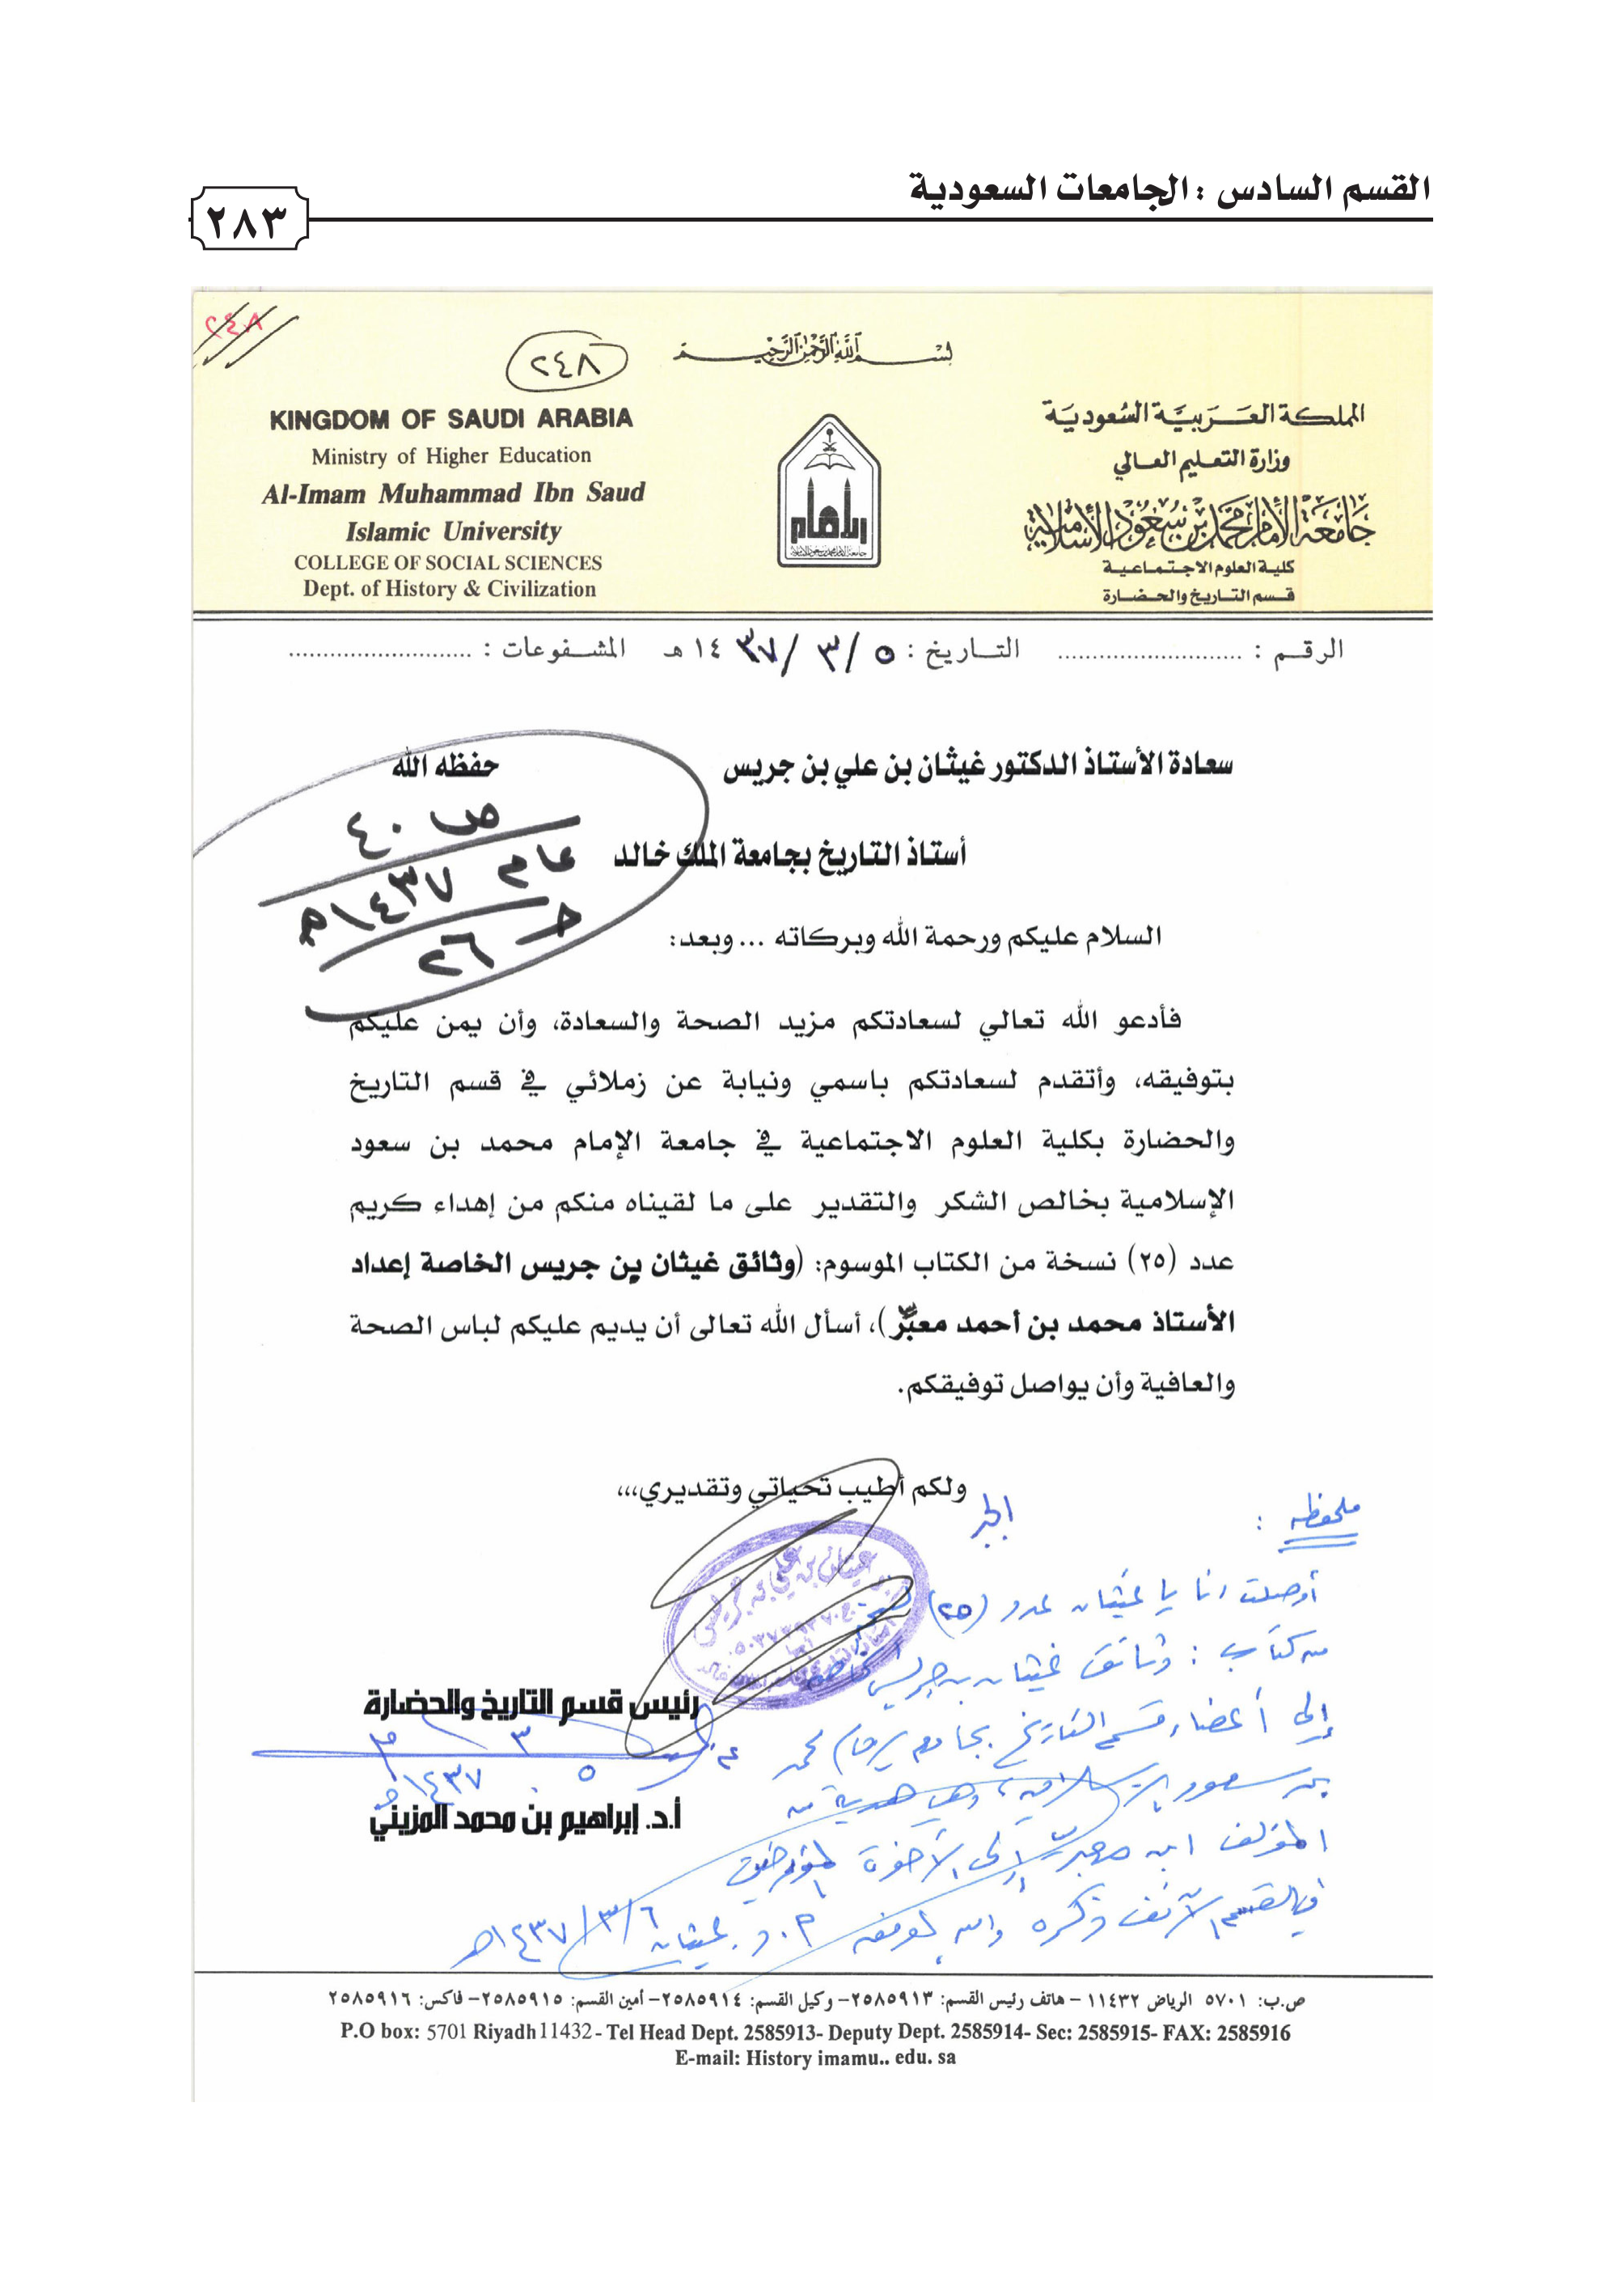 القسم السادس : الجامعات السعودية
٢٨٣
٢٤٨
٢٤٨
بسم الله الرحمن الرحيم
KINGDOM OF SAUDI ARABIA
Ministry of Higher Education
Al-Imam Muhammad Ibn Saud
Islamic University
COLLEGE OF SOCIAL SCIENCES
Dept. of History & Civilization
المملكة العربية السعودية
وزارة التعليم العالي
جامعة الإمام محمد بن سعود الإسلامية
كلية العلوم الاجتماعية
قسم التاريخ والحضارة
الرقم : .......................... التاريخ : ٥ / ٣ / ١٤٣٧ هـ المشفوعات : ..........................
سعادة الأستاذ الدكتور غيثان بن علي بن جريس حفظه الله
ص ٤٠
أستاذ التاريخ بجامعة الملك خالد
عام ١٤٣٧هـ
حـ ٢٦
السلام عليكم ورحمة الله وبركاته ... وبعد:
فأدعو الله تعالي لسعادتكم مزيد الصحة والسعادة، وأن يمن عليكم
بتوفيقه، وأتقدم لسعادتكم باسمي ونيابة عن زملائي في قسم التاريخ
والحضارة بكلية العلوم الاجتماعية في جامعة الإمام محمد بن سعود
الإسلامية بخالص الشكر والتقدير على ما لقيناه منكم من إهداء كريم
عدد (٢٥) نسخة من الكتاب الموسوم: (وثائق غيثان بن جريس الخاصة إعداد
الأستاذ محمد بن أحمد معبّر)، أسأل الله تعالى أن يديم عليكم لباس الصحة
والعافية وأن يواصل توفيقكم.
ولكم أطيب تحياتي وتقديري،،،
ملحوظة :
أوصلت أنا يا غيثان عدد (٢٥) نسخة
من كتاب : وثائق غيثان بن جريس الخاصة
إلى أعضاء قسم التاريخ بجامعة الإمام محمد
بن سعود الإسلامية، وهي هدية من
المؤلف ابن معبر إلى الأخوة المؤرخين
في القسم الآنف ذكره والله الموفق
غيثان ٦/٣/١٤٣٧هـ
رئيس قسم التاريخ والحضارة
٥ ٣ ١٤٣٧هـ
أ.د. إبراهيم بن محمد المزيني
ص.ب: ٥٧٠١ الرياض ١١٤٣٢ – هاتف رئيس القسم: ٢٥٨٥٩١٣– وكيل القسم: ٢٥٨٥٩١٤– أمين القسم: ٢٥٨٥٩١٥– فاكس: ٢٥٨٥٩١٦
P.O box: 5701 Riyadh11432 - Tel Head Dept. 2585913- Deputy Dept. 2585914- Sec: 2585915- FAX: 2585916
E-mail: History imamu.. edu. sa